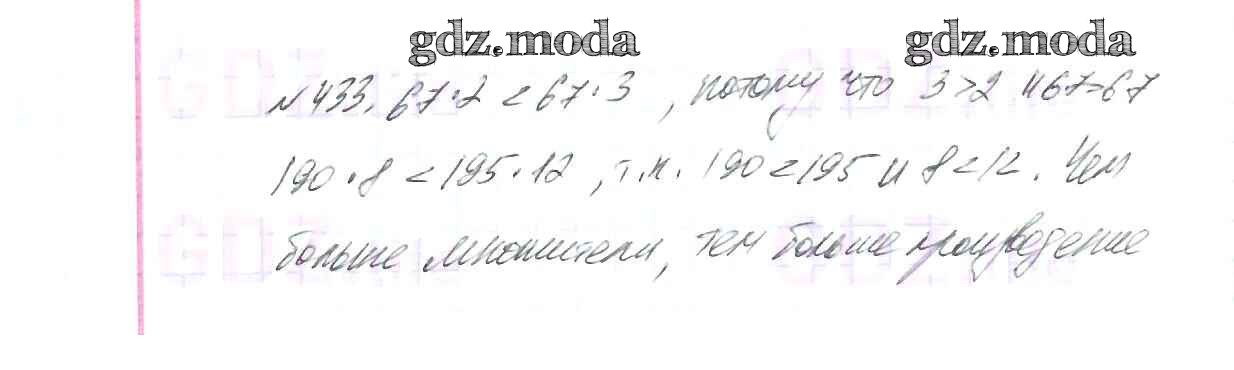 gdz.moda gdz.moda
№433. 67·2 < 67·3, потому что 3>2 и 67>67
190·8 < 195·12, т.к. 190<195 и 8<12. Чем
больше множители, тем больше произведение